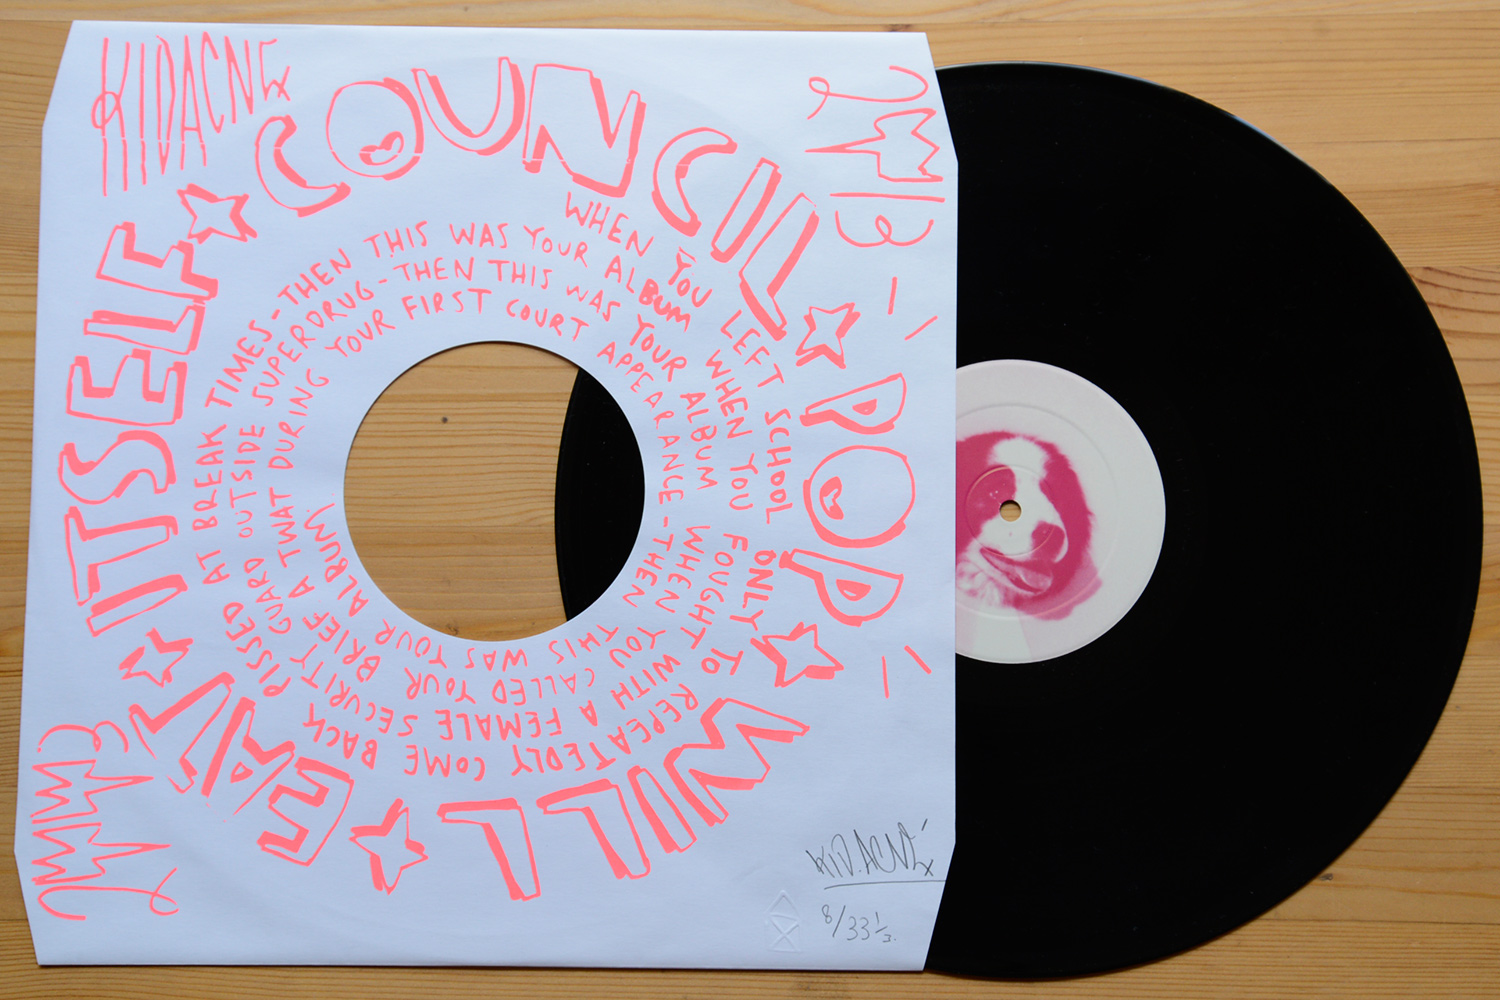 KIDACNE
COUNCIL POP WILL EAT ITSELF
WHEN YOU LEFT SCHOOL ONLY TO REPEATEDLY COME BACK PISSED AT BREAK TIMES - THEN THIS WAS YOUR ALBUM
WHEN YOU FOUGHT WITH A FEMALE SECURITY GUARD OUTSIDE SUPERDRUG - THEN THIS WAS YOUR ALBUM
WHEN YOU CALLED YOUR BRIEF A TWAT DURING YOUR FIRST COURT APPEARANCE - THEN THIS WAS YOUR ALBUM.
KID.ACNE
8/33 1/3.